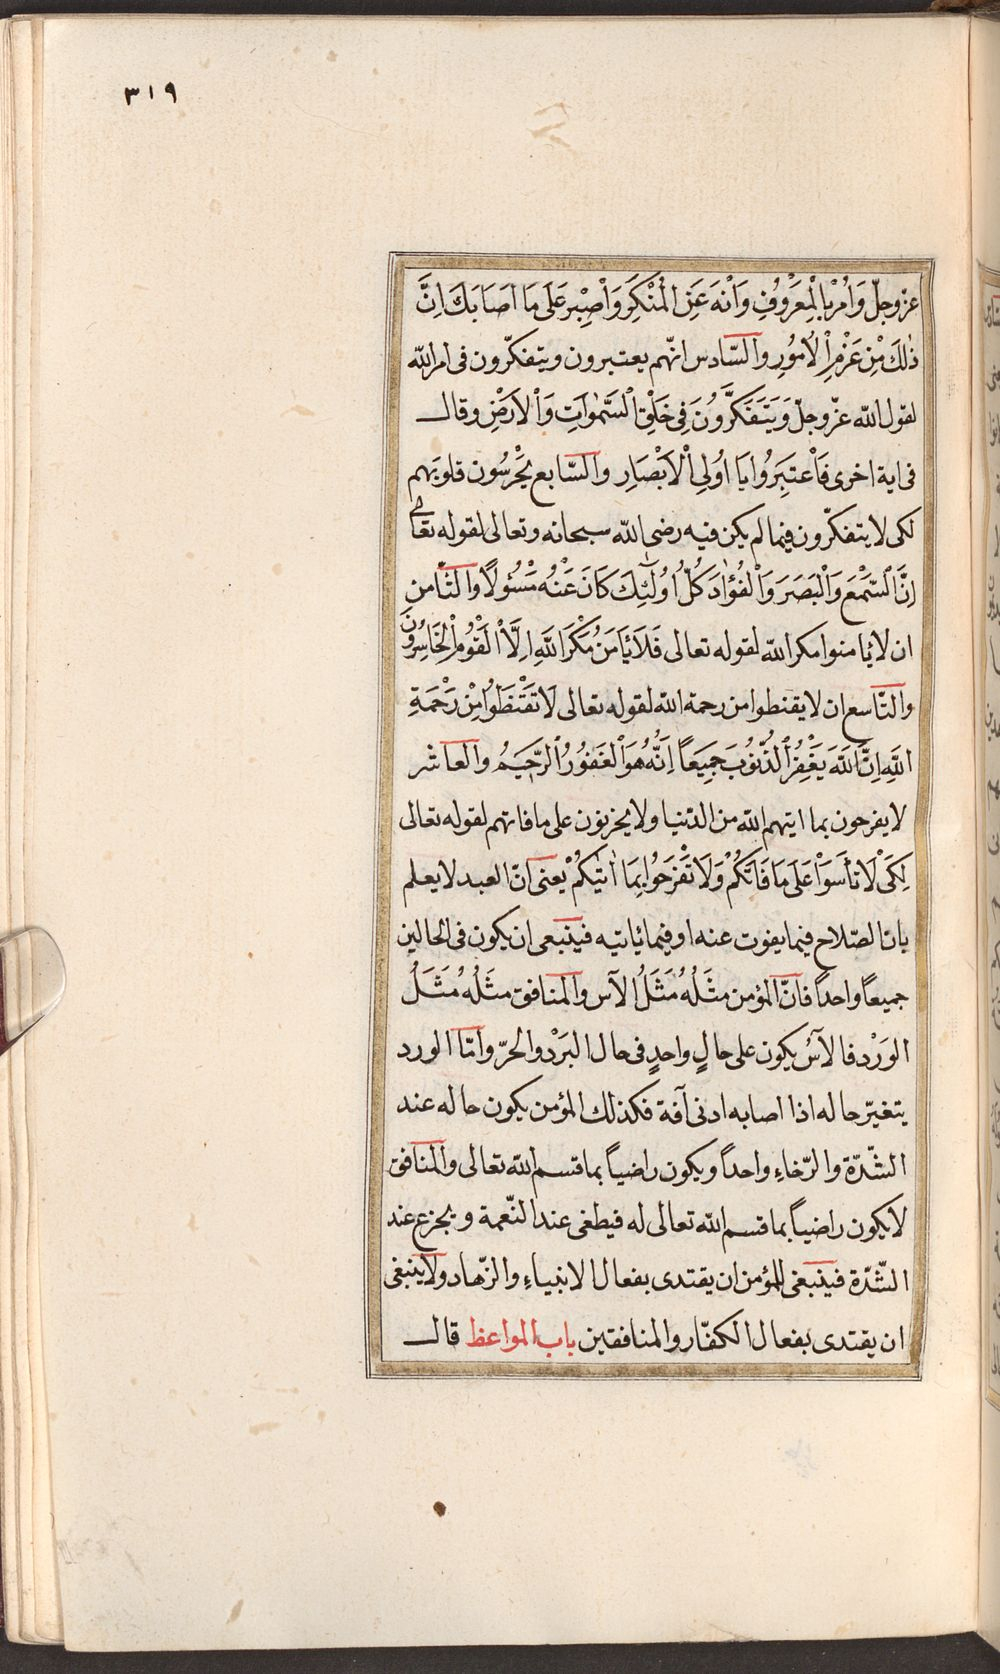 ٣١٩
عزّ وجلّ وَأْمُرْ بِالْمَعْرُوفِ وَانْهَ عَنِ الْمُنْكَرِ وَاصْبِرْ عَلَى مَا اَصَابَكَ اِنَّ
ذٰلِكَ مِنْ عَزْمِ الْاُمُورِ والسّادس انّهم يعتبرون ويتفكّرون فى امر الله
لقول الله عزّ وجلّ وَيَتَفَكَّرُونَ فِى خَلْقِ السَّمٰوَاتِ وَالْاَرْضِ وقال
فى اية اخرى فَاعْتَبِرُوا يَا اُولِى الْاَبْصَارِ والسّابع يَحْرُسُون قلوبَهم
لكى لا يتفكّرون فيما لم يكن فيه رضى الله سبحانه وتعالى لقوله تعالى
اِنَّ السَّمْعَ وَالْبَصَرَ وَالْفُؤٰادَ كُلُّ اُولٰئِكَ كَانَ عَنْهُ مَسْئُولًا والثّامن
ان لا ئامنوا مكر الله لقوله تعالى فَلَا ئَامَنُ مَكْرَ اللّٰهِ اِلَّا الْقَوْمُ الْخَاسِرُونَ
والتّاسع ان لا يقنطوا من رحمة الله لقوله تعالى لَا تَقْنَطُوا مِنْ رَحْمَةِ
اللّٰهِ اِنَّ اللّٰهَ يَغْفِرُ الذُّنُوبَ جَمِيعًا اِنَّهُ هُوَ الْغَفُورُ الرَّحِيمُ والعاشر
لا يفرحون بما اتيهم الله من الدّنيا ولا يحزنون على ما فاتهم لقوله تعالى
لِكَىْ لَا تَأْسَوْا عَلَى مَا فَاتَكُمْ وَلَا تَفْرَحُوا بِمَا اٰتٰيكُمْ يعنى انّ العبد لا يعلم
بانّ الصّلاح فيما يفوت عنه او فيما ئاتيه فينبغى ان يكون فى الحالين
جميعاً واحداً فانّ المؤمن مثَلُهُ مَثَلُ الآس والمنافق مثَلُهُ مَثَلُ
الوَرْد فالآسُ يكون على حالٍ واحدٍ فى حال البَرْد والحرّ وامّا الورد
يتغيّر حاله اذا اصابه ادنى آفة فكذلك المؤمن يكون حاله عند
الشّدّة والرّخاءِ واحداً ويكون راضياً بما قسم الله تعالى والمنافق
لا يكون راضياً بما قسم الله تعالى له فيطغى عند النّعمة ويجزع عند
الشّدّة فينبغى للمؤمن ان يقتدى بفعال الانبياءِ والزّهاد ولا ينبغى
ان يقتدى بفعال الكفّار والمنافقين باب المواعظ قال